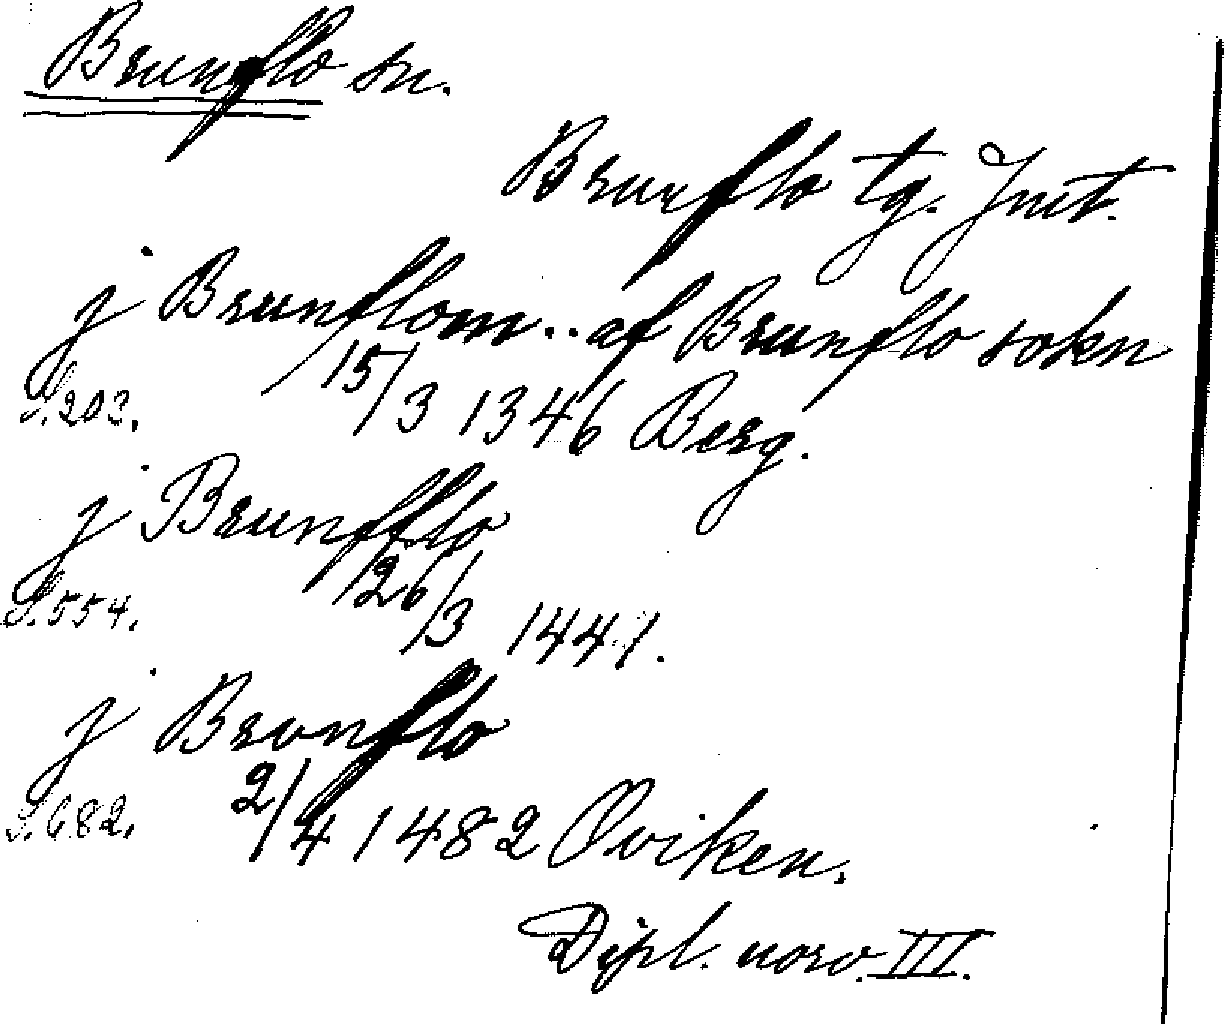 Brunflo sn.
Brunflo tg. Jmt.
j Brunflom .. af Brunflo sokn
S. 203. 15/3 1346 Berg.
j Brunfflo
S. 554. 26/3 1447.
j Brunflo
S. 682. 2/4 1482 Oviken.
Dipl. norv. III.